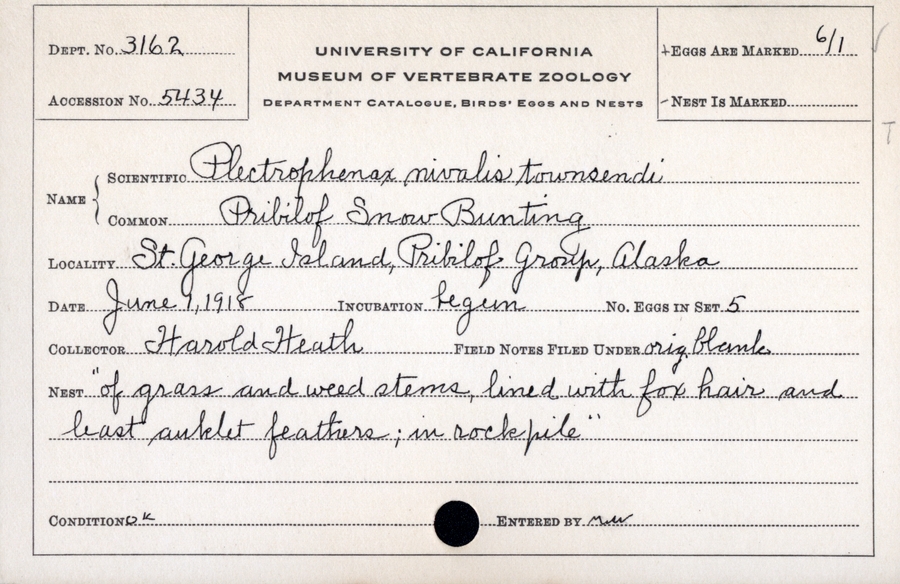 DEPT. No. 3162
ACCESSION No. 5434
UNIVERSITY OF CALIFORNIA
MUSEUM OF VERTEBRATE ZOOLOGY
DEPARTMENT CATALOGUE, BIRDS' EGGS AND NESTS
EGGS ARE MARKED 6/1
NEST IS MARKED
T
NAME
SCIENTIFIC Plectrophenax nivalis townsendi
COMMON Pribilof Snow Bunting
LOCALITY St. George Island, Pribilof Group, Alaska
DATE June 1, 1918 INCUBATION begun No. EGGS IN SET 5
COLLECTOR Harold Heath FIELD NOTES FILED UNDER orig blank
NEST "of grass and weed stems, lined with fox hair and
least auklet feathers; in rockpile"
CONDITION OK ENTERED BY